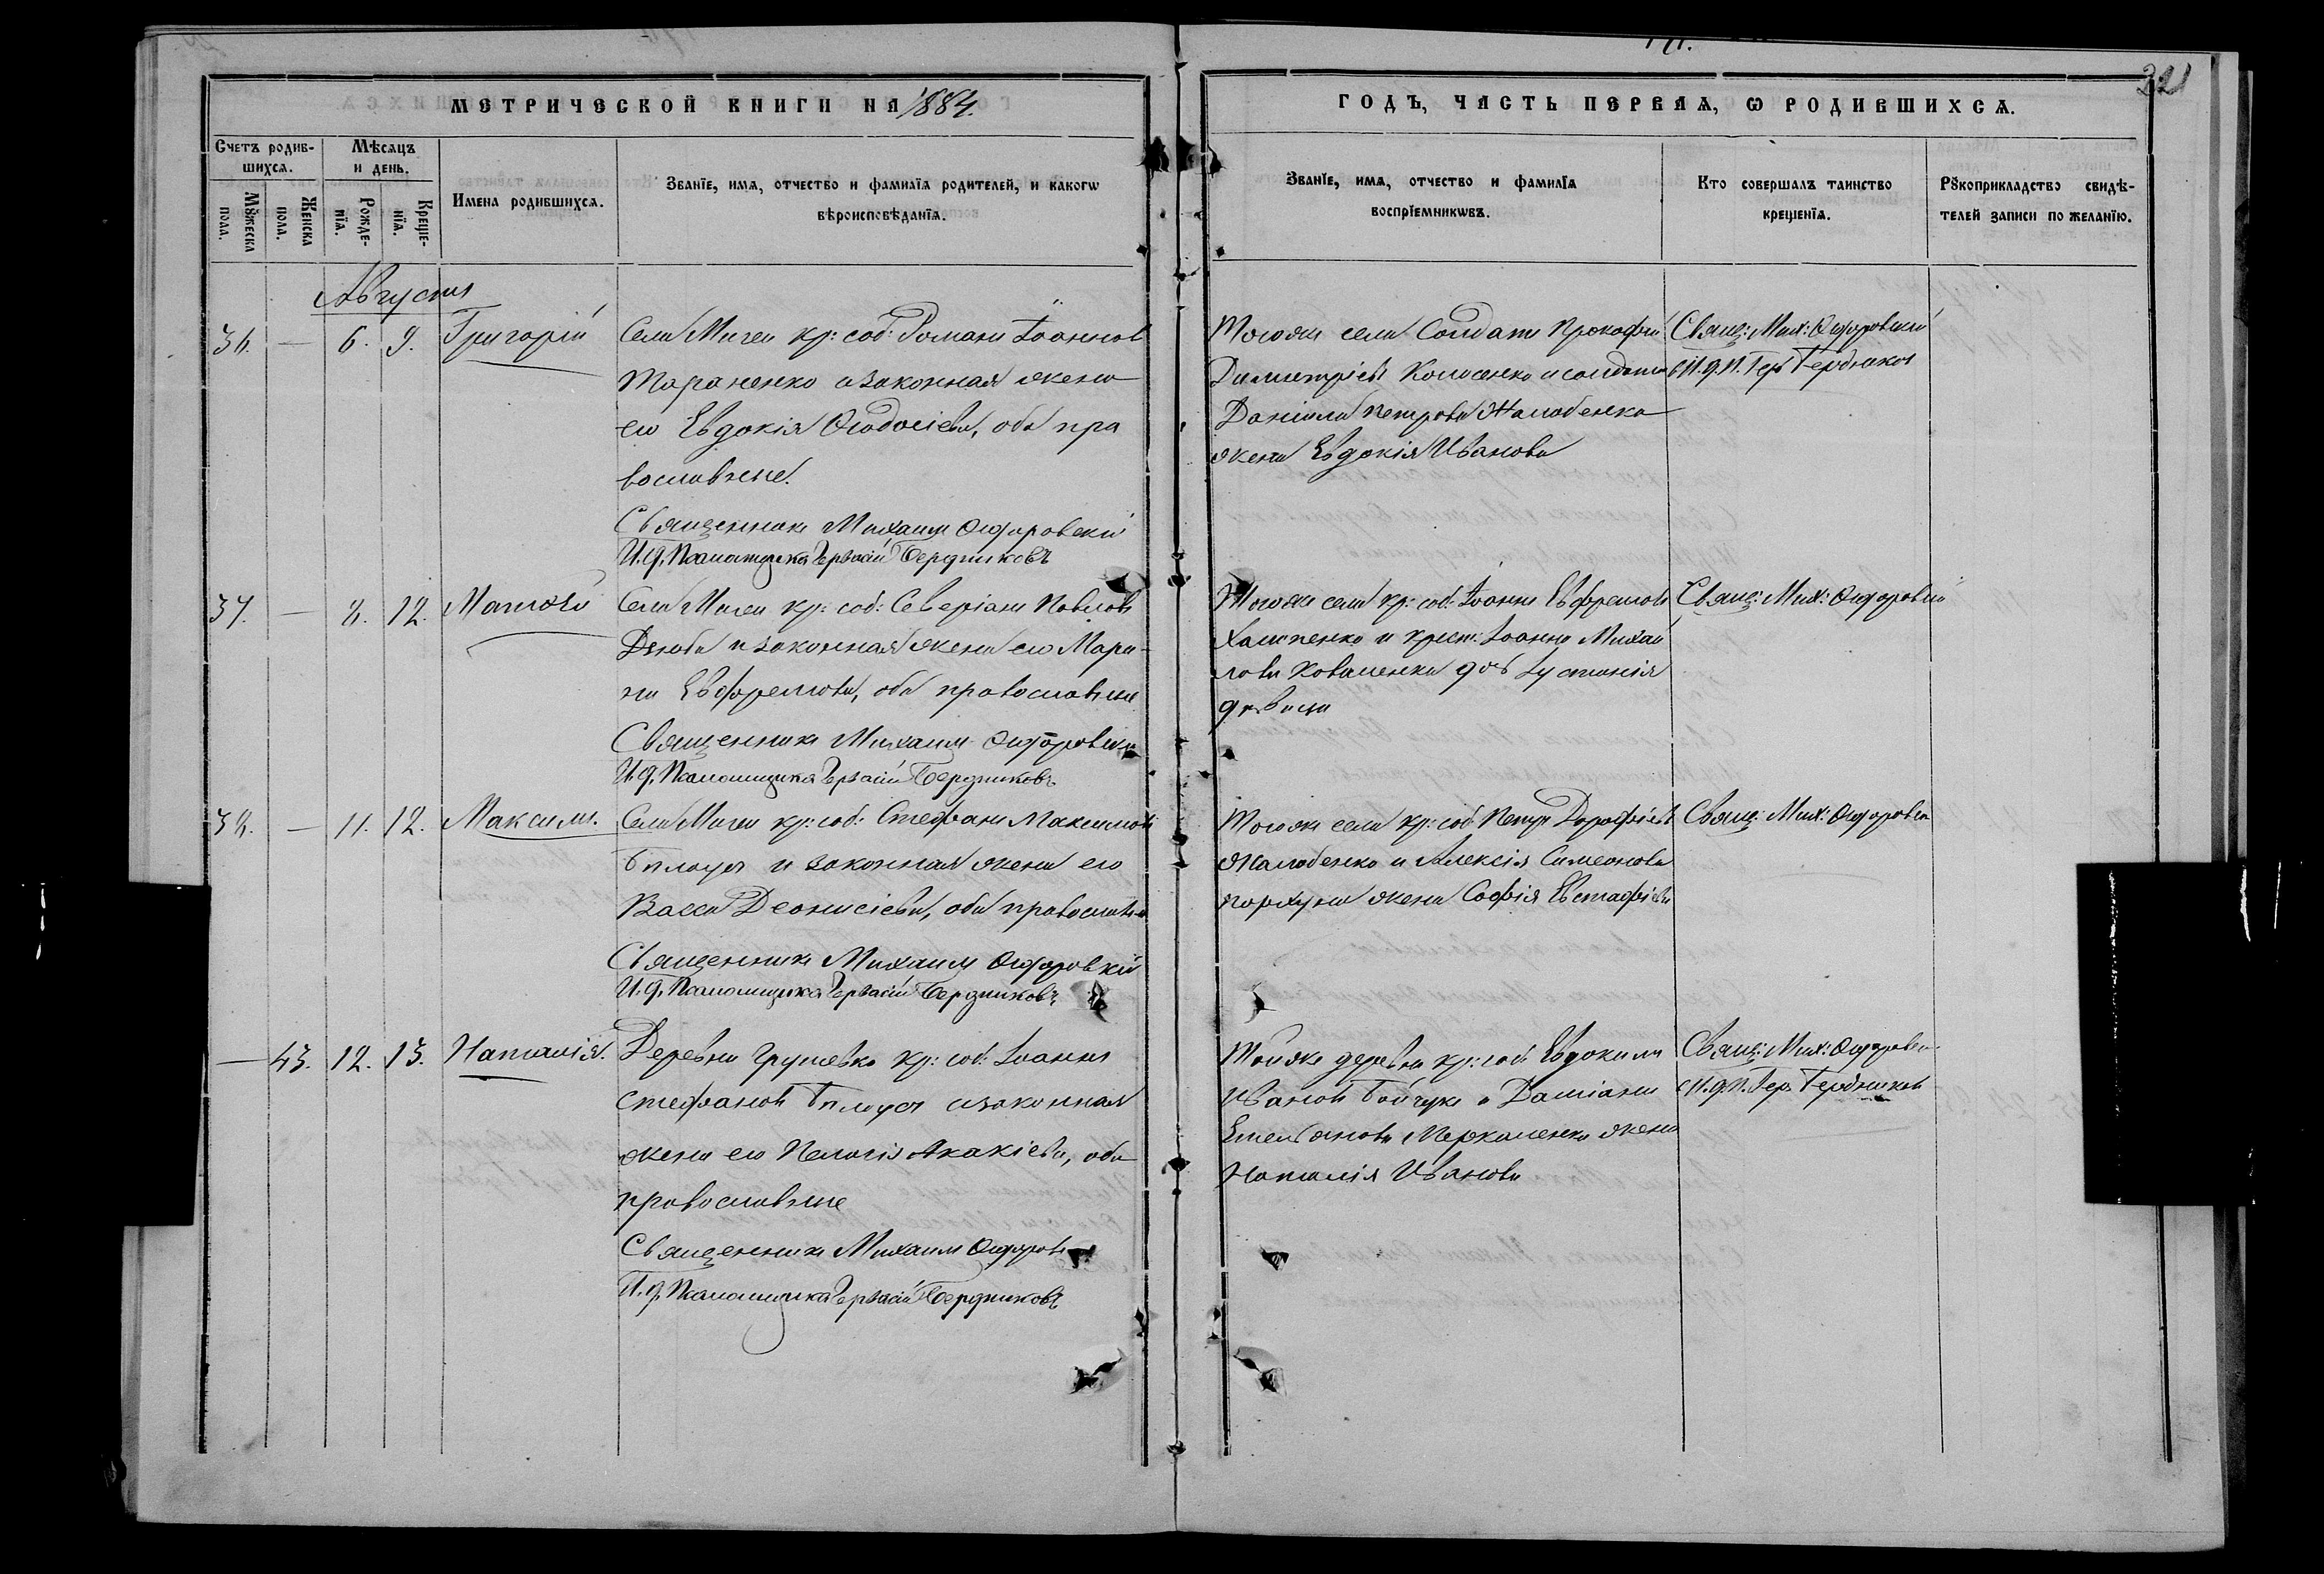 МЕТРИЧЕСКОЙ КНИГИ НА 1884.
ГОДЪ, ЧАСТЬ ПЕРВАЯ, Ѡ РОДИВШИХСѦ.
221
Счетъ родив-
шихсѧ.
Мѣсѧцъ
и день.
Мꙋжеска
пола.
Женска
пола.
Рожде-
нїѧ.
Креще-
нїѧ.
Имена родившихсѧ.
Званїе, имѧ, отчество и фамилїѧ родителей, и какогѡ
вѣроисповѣданїѧ.
Званїе, имѧ, отчество и фамилїѧ
воспрїемникѡвъ.
Кто совершалъ таинство
крещенїѧ.
Рꙋкоприкладство свидѣ-
телей записи по желанїю.
Августъ
36. — 6. 9. Григорій
Села Мигеи кр: соб: Романъ Іоанновъ
Тараненко и законная жена
его Евдокія Ѳеодосіева, оба пра
вославные.
Священникъ Михаилъ
И. д. Псаломщика Гервасій Бердниковъ
Тогоже села Солдатъ Прокофій
Димитріевъ Колосенко и солдата
Даніила Петрова Жалобенка
жена Евдокія Иванова
Свящ: Мих:
съ И. д. П. Гер. Бердников
37. — 8. 12. Матѳей
Села Мигеи кр: соб: Северіанъ Павловъ
Дзюба и законная жена его Мари-
на Евфремова, оба православные
Священникъ Михаилъ
И. д. Псаломщика Гервасій Бердниковъ
Тогоже села кр: соб: Іоаннъ Евфремовъ
Халипенко и крест: Іоанна Михай
лова Коваленка дочь Іустинія
дѣвица
Свящ: Мих:
38. — 11. 12. Максимъ.
Села Мигеи кр: соб: Стефанъ Максимовъ
Бѣлоусъ и законная жена его
Васса Деонисіева, оба православ
Священникъ Михаилъ
И. д. Псаломщика Гервасій Бердниковъ
Тогоже села кр: соб: Петръ Дорофіевъ
Жалобенко и Алексія Симеонова
жена Софія Евстафіева
Свящ: Мих:
— 43. 12. 13. Наталія.
Деревни Грушевка кр: соб: Іоаннъ
Стефановъ Бѣлоусъ и законная
жена его Пелагія Акакіева, оба
православные
Священникъ Михаилъ
И. д. Псаломщика Гервасій Бердниковъ
Тойже деревни кр: соб: Евдокимъ
Ивановъ Бойчукъ и Даміана
Емельянова жена
Наталія Иванова
Свящ: Мих:
съ И. д. П. Гер. Бердников